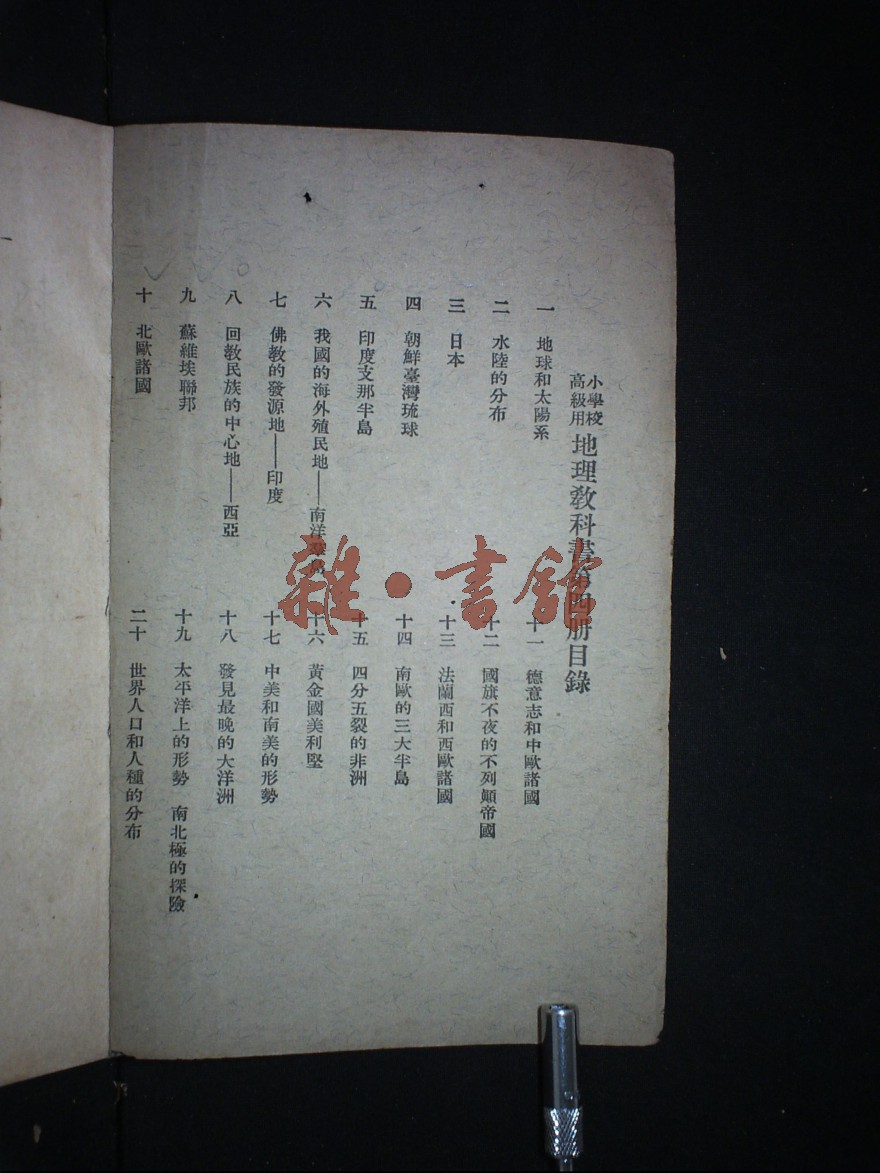 小學校
高級用
地理教科書第四册目錄
一　地球和太陽系
二　水陸的分布
三　日本
四　朝鮮臺灣琉球
五　印度支那半島
六　我國的海外殖民地——南洋羣島
七　佛教的發源地——印度
八　回教民族的中心地——西亞
九　蘇維埃聯邦
十　北歐諸國
十一　德意志和中歐諸國
十二　國旗不夜的不列顛帝國
十三　法蘭西和西歐諸國
十四　南歐的三大半島
十五　四分五裂的非洲
十六　黃金國美利堅
十七　中美和南美的形勢
十八　發見最晚的大洋洲
十九　太平洋上的形勢　南北極的探險
二十　世界人口和人種的分布
雜·書館